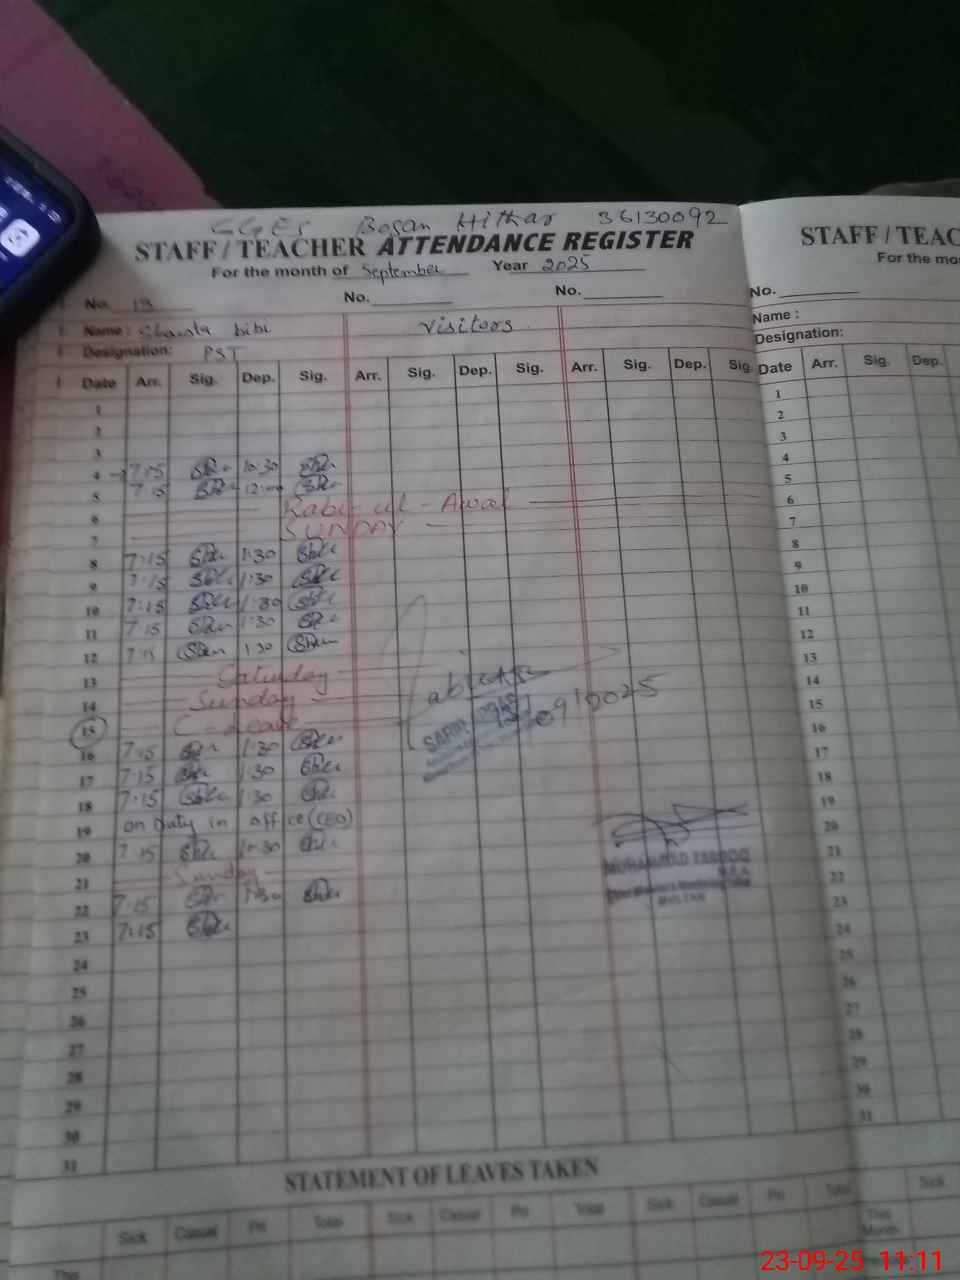 GGES Bosan Hithar 36130092
STAFF / TEACHER ATTENDANCE REGISTER
For the month of September Year 2025
No. 13 No. No.
Name: bibi Visitors
Designation: PST
Date Arr. Sig. Dep. Sig. Arr. Sig. Dep. Sig. Arr. Sig. Dep. Sig.
1
2
3
4 7:15 10:30
5 7:15 12:00
6 Rabi ul-Awal
7 SUNDAY
8 7:15 1:30
9 7:15 1:30
10 7:15 1:30
11 7:15 1:30
12 7:15 1:30
13 Saturday
14 Sunday
15 C-Leave
16 7:15 1:30
17 7:15 1:30
18 7:15 1:30
19 on Duty in office (CEO)
20 7:15 10:30
21 Sunday
22 7:15 1:30
23 7:15
24
25
26
27
28
29
30
31
MUHAMMAD FAROOQ
M.E.A
MULTAN
STATEMENT OF LEAVES TAKEN
Sick Casual Pri Total Sick Casual Pri Total Sick Casual Pri Total
This
STAFF / TEAC
For the mo
No.
Name :
Designation:
Date Arr. Sig. Dep.
1
2
3
4
5
6
7
8
9
10
11
12
13
14
15
16
17
18
19
20
21
22
23
24
25
26
27
28
29
30
31
Sick
This
Month
23-09-25 11:11